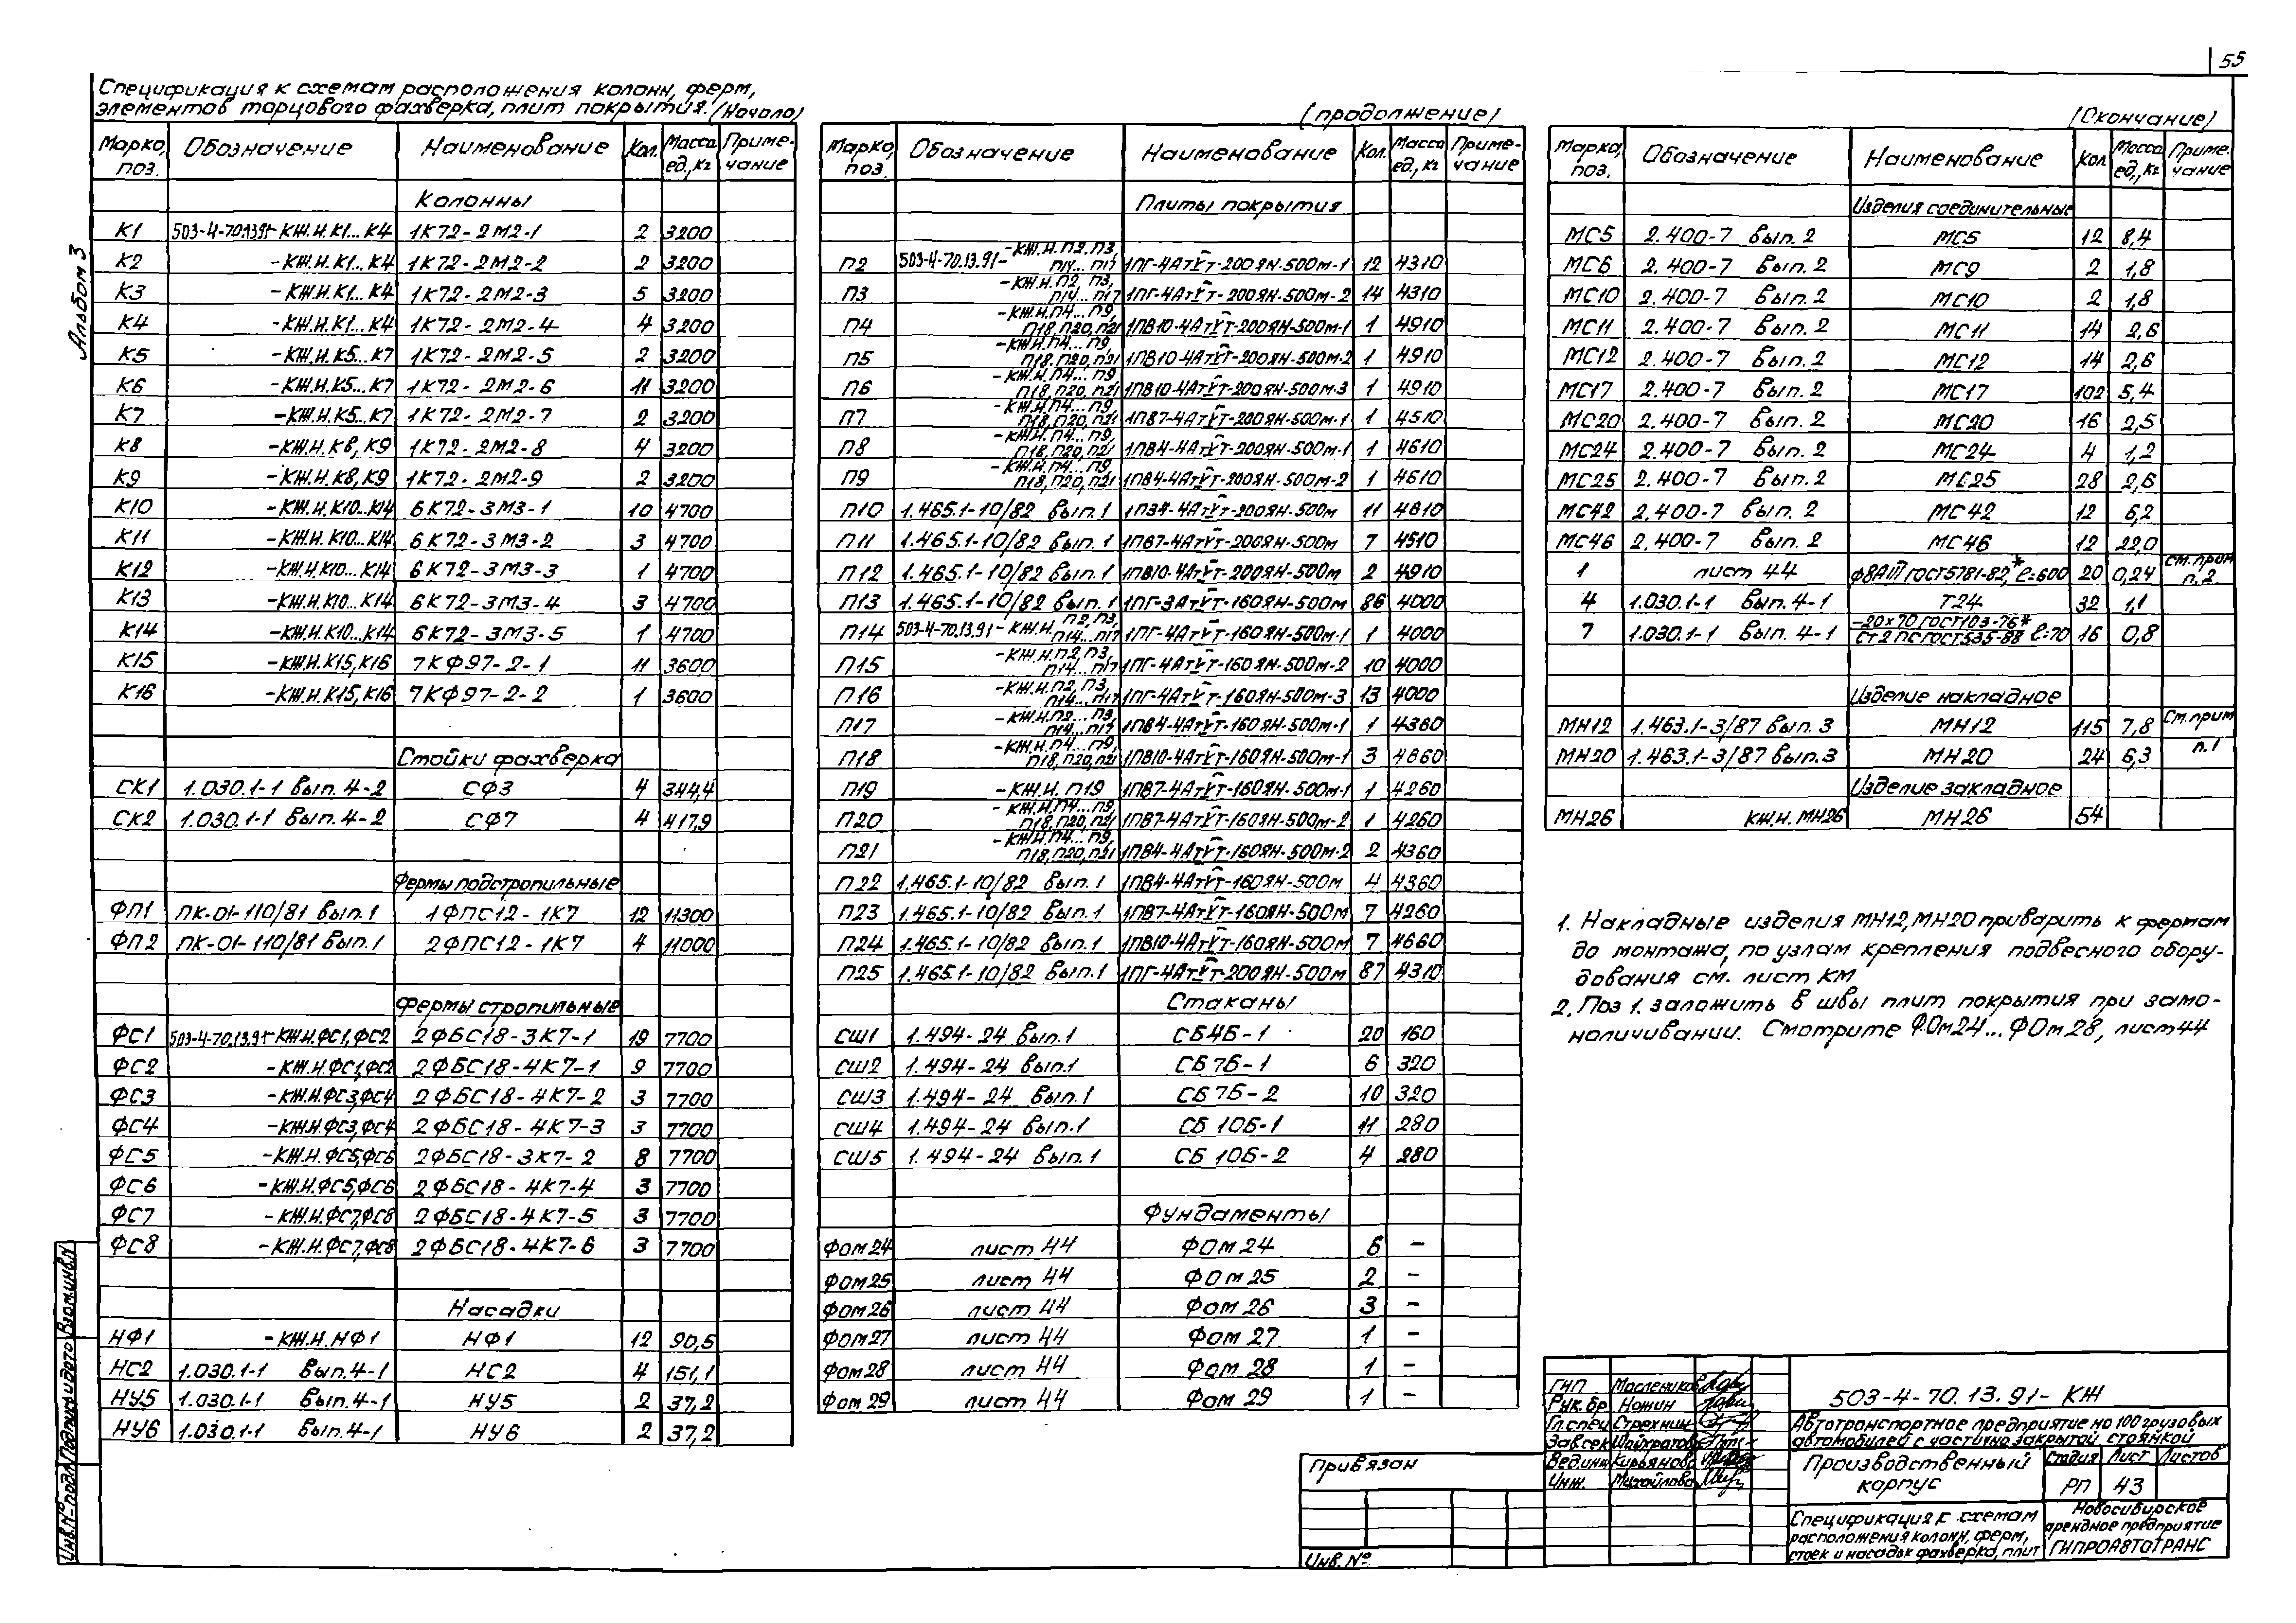 55
Альбом 3
Спецификация к схемам расположения колонн, ферм,
элементов торцового фахверка, плит покрытия. (Начало)
Марка, поз. Обозначение Наименование Кол. Масса ед., кг Примечание
Колонны
К1 503-4-70.13.91-КЖ.И.К1...К4 1К72-2М2-1 2 3200
К2 -КЖ.И.К1...К4 1К72-2М2-2 2 3200
К3 -КЖ.И.К1...К4 1К72-2М2-3 5 3200
К4 -КЖ.И.К1...К4 1К72-2М2-4 4 3200
К5 -КЖ.И.К5...К7 1К72-2М2-5 2 3200
К6 -КЖ.И.К5...К7 1К72-2М2-6 11 3200
К7 -КЖ.И.К5...К7 1К72-2М2-7 2 3200
К8 -КЖ.И.К8, К9 1К72-2М2-8 4 3200
К9 -КЖ.И.К8, К9 1К72-2М2-9 2 3200
К10 -КЖ.И.К10...К14 6К72-3М3-1 10 4700
К11 -КЖ.И.К10...К14 6К72-3М3-2 3 4700
К12 -КЖ.И.К10...К14 6К72-3М3-3 1 4700
К13 -КЖ.И.К10...К14 6К72-3М3-4 3 4700
К14 -КЖ.И.К10...К14 6К72-3М3-5 1 4700
К15 -КЖ.И.К15, К16 7КФ97-2-1 11 3600
К16 -КЖ.И.К15, К16 7КФ97-2-2 1 3600
Стойки фахверка
СК1 1.030.1-1 Вып. 4-2 СФ3 4 344,4
СК2 1.030.1-1 Вып. 4-2 СФ7 4 417,9
Фермы подстропильные
ФП1 ПК-01-110/81 Вып.1 1ФПС12-1К7 12 11300
ФП2 ПК-01-110/81 Вып.1 2ФПС12-1К7 4 11000
Фермы стропильные
ФС1 503-4-70.13.91-КЖ.И.ФС1, ФС2 2ФБС18-3К7-1 19 7700
ФС2 -КЖ.И.ФС1, ФС2 2ФБС18-4К7-1 9 7700
ФС3 -КЖ.И.ФС3, ФС4 2ФБС18-4К7-2 3 7700
ФС4 -КЖ.И.ФС3, ФС4 2ФБС18-4К7-3 3 7700
ФС5 -КЖ.И.ФС5, ФС6 2ФБС18-3К7-2 8 7700
ФС6 -КЖ.И.ФС5, ФС6 2ФБС18-4К7-4 3 7700
ФС7 -КЖ.И.ФС7, ФС8 2ФБС18-4К7-5 3 7700
ФС8 -КЖ.И.ФС7, ФС8 2ФБС18-4К7-6 3 7700
Насадки
НФ1 -КЖ.И.НФ1 НФ1 12 90,5
НС2 1.030.1-1 Вып. 4-1 НС2 4 151,1
НУ5 1.030.1-1 Вып. 4-1 НУ5 2 37,2
НУ6 1.030.1-1 Вып. 4-1 НУ6 2 37,2
(продолжение)
Марка, поз. Обозначение Наименование Кол. Масса ед., кг Примечание
Плиты покрытия
П2 503-4-70.13.91-КЖ.И.П2, П3, П14...П17 1ПГ-4АтVТ-200ЯН-500м-1 12 4310
П3 -КЖ.И.П2, П3, П14...П17 1ПГ-4АтVТ-200ЯН-500м-2 14 4310
П4 -КЖ.И.П4...П9, П18, П20, П21 1ПВ10-4АтVТ-200ЯН-500м-1 1 4910
П5 -КЖ.И.П4...П9, П18, П20, П21 1ПВ10-4АтVТ-200ЯН-500м-2 1 4910
П6 -КЖ.И.П4...П9, П18, П20, П21 1ПВ10-4АтVТ-200ЯН-500м-3 1 4910
П7 -КЖ.И.П4...П9, П18, П20, П21 1ПВ7-4АтVТ-200ЯН-500м-1 1 4510
П8 -КЖ.И.П4...П9, П18, П20, П21 1ПВ4-4АтVТ-200ЯН-500м-1 1 4610
П9 -КЖ.И.П4...П9, П18, П20, П21 1ПВ4-4АтVТ-200ЯН-500м-2 1 4610
П10 1.465.1-10/82 Вып.1 11 4610
П11 1.465.1-10/82 Вып.1 1ПВ7-4АтVТ-200ЯН-500м 7 4510
П12 1.465.1-10/82 Вып.1 1ПВ10-4АтVТ-200ЯН-500м 2 4910
П13 1.465.1-10/82 Вып.1 1ПГ-3АтVТ-160ЯН-500м 86 4000
П14 503-4-70.13.91-КЖ.И.П2, П3, П14...П17 1ПГ-4АтVТ-160ЯН-500м-1 1 4000
П15 -КЖ.И.П2, П3, П14...П17 1ПГ-4АтVТ-160ЯН-500м-2 10 4000
П16 -КЖ.И.П2, П3, П14...П17 1ПГ-4АтVТ-160ЯН-500м-3 13 4000
П17 -КЖ.И.П2...П3, П14...П17 1ПВ4-4АтVТ-160ЯН-500м-1 1 4360
П18 -КЖ.И.П4...П9, П18, П20, П21 1ПВ10-4АтVТ-160ЯН-500м-1 3 4660
П19 -КЖ.И. П19 1ПВ7-4АтVТ-160ЯН-500м-1 1 4260
П20 -КЖ.И.П4...П9, П18, П20, П21 1ПВ7-4АтVТ-160ЯН-500м-2 1 4260
П21 -КЖ.И.П4...П9, П18, П20, П21 1ПВ4-4АтVТ-160ЯН-500м-2 2 4360
П22 1.465.1-10/82 Вып.1 1ПВ4-4АтVТ-160ЯН-500м 4 4360
П23 1.465.1-10/82 Вып.1 1ПВ7-4АтVТ-160ЯН-500м 7 4260
П24 1.465.1-10/82 Вып.1 1ПВ10-4АтVТ-160ЯН-500м 7 4660
П25 1.465.1-10/82 Вып.1 1ПГ-4АтVТ-200ЯН-500м 87 4310
Стаканы
СШ1 1.494-24 Вып.1 СБ4Б-1 20 160
СШ2 1.494-24 Вып.1 СБ7Б-1 6 320
СШ3 1.494-24 Вып.1 СБ7Б-2 10 320
СШ4 1.494-24 Вып.1 СБ10Б-1 11 280
СШ5 1.494-24 Вып.1 СБ10Б-2 4 280
Фундаменты
Фом24 лист 44 ФОм24 6 -
Фом25 лист 44 ФОм25 2 -
Фом26 лист 44 Фом 26 3 -
Фом27 лист 44 Фом 27 1 -
Фом28 лист 44 Фом 28 1 -
Фом29 лист 44 Фом 29 1 -
(Окончание)
Марка, поз. Обозначение Наименование Кол Масса ед., кг Примечание
Изделия соединительные
МС5 2.400-7 Вып. 2 МС5 12 8,4
МС6 2.400-7 Вып. 2 МС9 2 1,8
МС10 2.400-7 Вып. 2 МС10 2 1,8
МС11 2.400-7 Вып. 2 МС11 14 2,6
МС12 2.400-7 Вып. 2 МС12 14 2,6
МС17 2.400-7 Вып. 2 МС17 102 5,4
МС20 2.400-7 Вып. 2 МС20 16 2,5
МС24 2.400-7 Вып. 2 МС24 4 1,2
МС25 2.400-7 Вып. 2 МС25 28 2,6
МС42 2.400-7 Вып. 2 МС42 12 6,2
МС46 2.400-7 Вып. 2 МС46 12 22,0
1 лист 44 ф8АIII ГОСТ5781-82,* ℓ=600 20 0,24 см. прим п. 2
4 1.030.1-1 Вып. 4-1 Т24 32 1,1
7 1.030.1-1 Вып. 4-1 -20х70 ГОСТ103-76* Ст2ПСГОСТ535-88 ℓ=70 16 0,8
Изделие накладное
МН12 1.463.1-3/87 Вып. 3 МН12 115 7,8 См. прим
МН20 1.463.1-3/87 Вып. 3 МН20 24 6,3 п.1
Изделие закладное
МН26 КЖ.И. МН26 МН26 54
1. Накладные изделия МН12, МН20 приварить к фермам
до монтажа, по узлам крепления подвесного обору-
дования см. лист КМ
2. Поз 1. заложить в швы плит покрытия при замо-
ноличивании. Смотрите ФОм24...ФОм28, лист 44
Инв. № подл Подпись и дата Взам.инв.№
Привязан
Инв. №
ГИП Маслеников
Рук. бр Ножин
Гл. спец Стрехнин
Зав. сек Шайхратова
Вед. инж Кирьянова
Инж. Михайлова
503-4-70.13.91-КЖ
Автотранспортное предприятие на 100 грузовых
автомобилей с частично закрытой стоянкой
Производственный
корпус
Стадия Лист Листов
РП 43
Спецификация к схемам
расположения колонн, ферм,
стоек и насадок фахверка, плит
Новосибирское
арендное предприятие
ГИПРОАВТОТРАНС